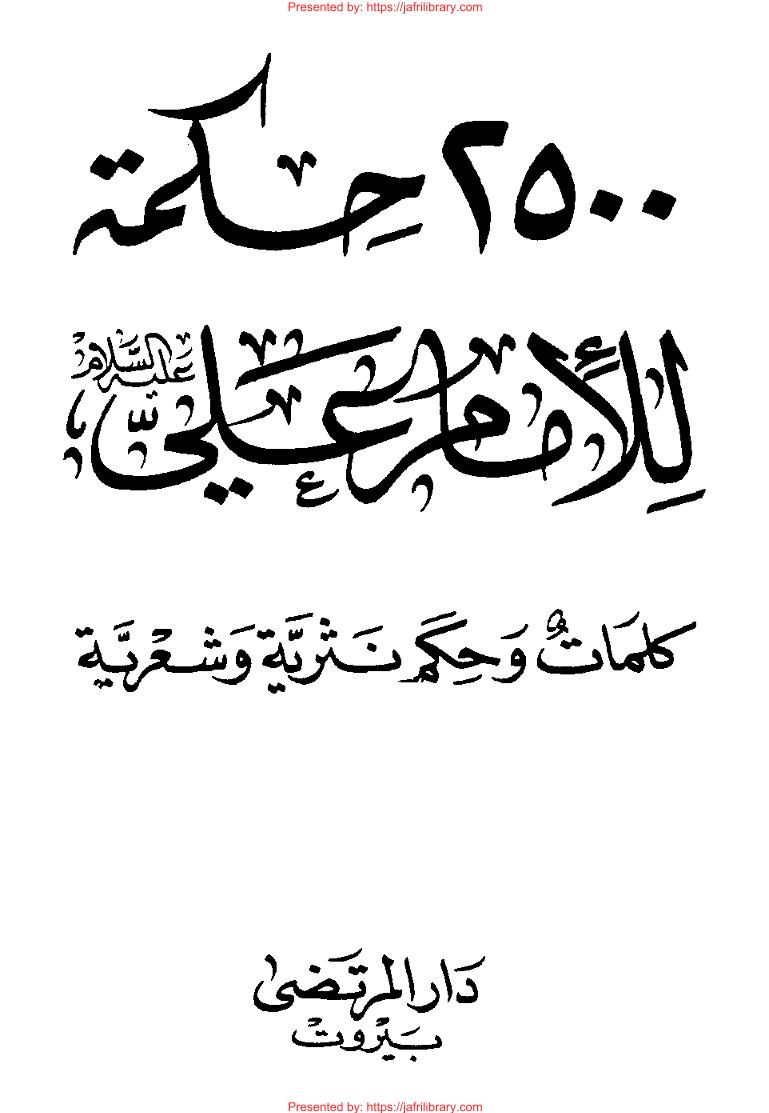 Presented by: https://jafrilibrary.com
٢٥٠٠ حِكمة
لِلإمام عَليّ عَليه السَّلام
كلمَاتٌ وَحِكَم نَثريَّة وَشعْريَّة
دَار المرتَضى
بَيْروت
Presented by: https://jafrilibrary.com